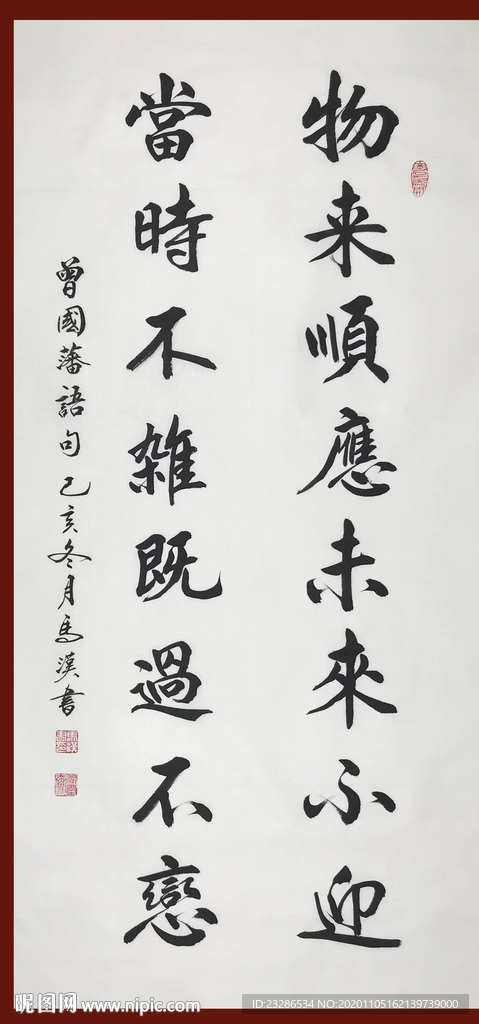 物来順應未來不迎
當時不雜既過不戀
曾國藩語句 己亥冬月馬漢書
昵图网 www.nipic.com
ID:23286534 NO:20201105162139739000